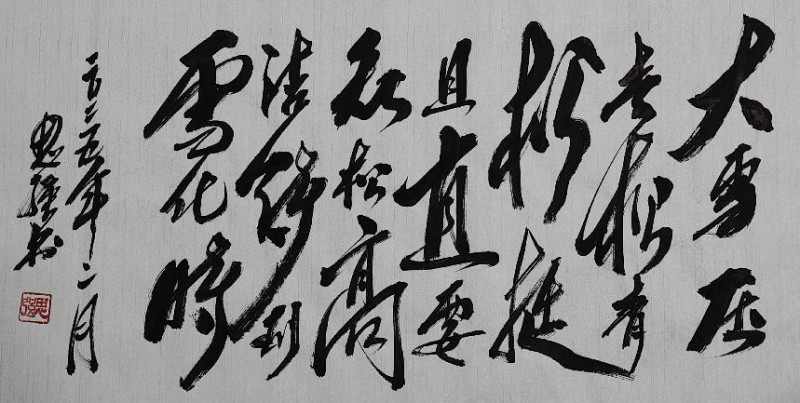 大雪压
青松青
松挺
且直要
知松高
洁待到
雪化時
二〇二五年二月
思强书
思强